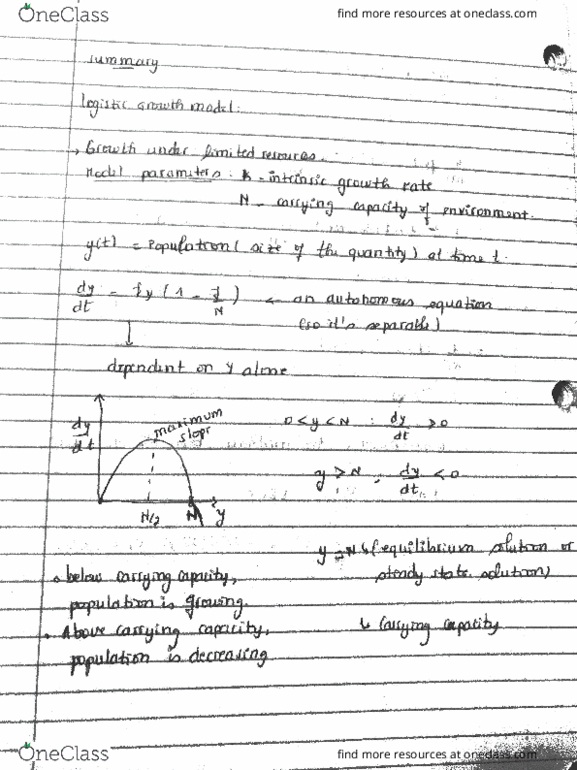 OneClass
find more resources at oneclass.com
summary
logistic growth model:
, Growth under limited resources.
Model parameters: k - intrinsic growth rate
N - carrying capacity of environment.
y(t) = Population ( size of the quantity) at time t.
dy/dt = ky (1 - y/N) ← an autonomous equation
(so it's separable)
↓
dependent on y alone
dy/dt
maximum
slope
N/2 N y
0 < y < N : dy/dt > 0
y > N , dy/dt < 0
y = N ↳ (equilibrium solution or
steady state solution)
↳ Carrying capacity
• below carrying capacity,
population is growing.
• Above carrying capacity,
population is decreasing
OneClass
find more resources at oneclass.com